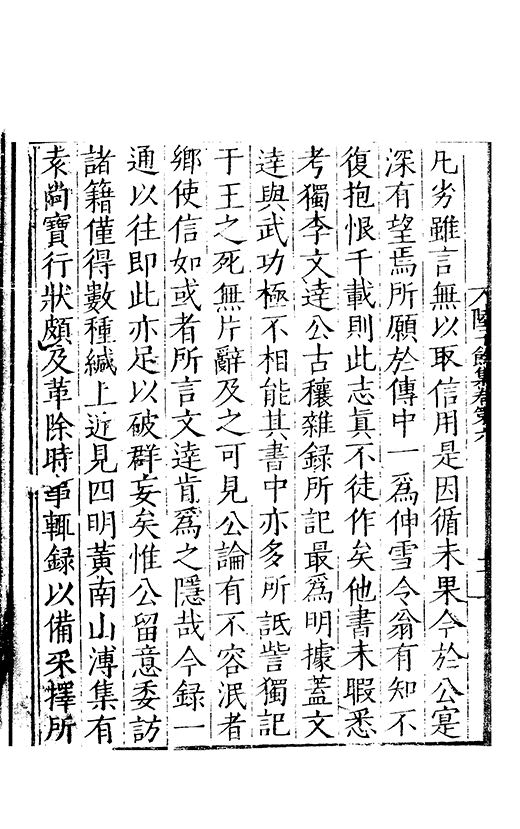 凡劣雖言無以取信用是因循未果今於公寔
深有望焉所願於傳中一爲伸雪令翁有知不
復抱恨千載則此志眞不徒作矣他書未暇悉
考獨李文達公古穰雜録所記最爲明據蓋文
達與武功極不相能其書中亦多所詆訾獨記
于王之死無片辭及之可見公論有不容泯者
鄉使信如或者所言文達肯爲之隱哉今録一
通以往即此亦足以破群妄矣惟公留意委訪
諸籍僅得數種緘上近見四明黃南山溥集有
袁尚寶行狀頗及革除時事輒録以備采擇所